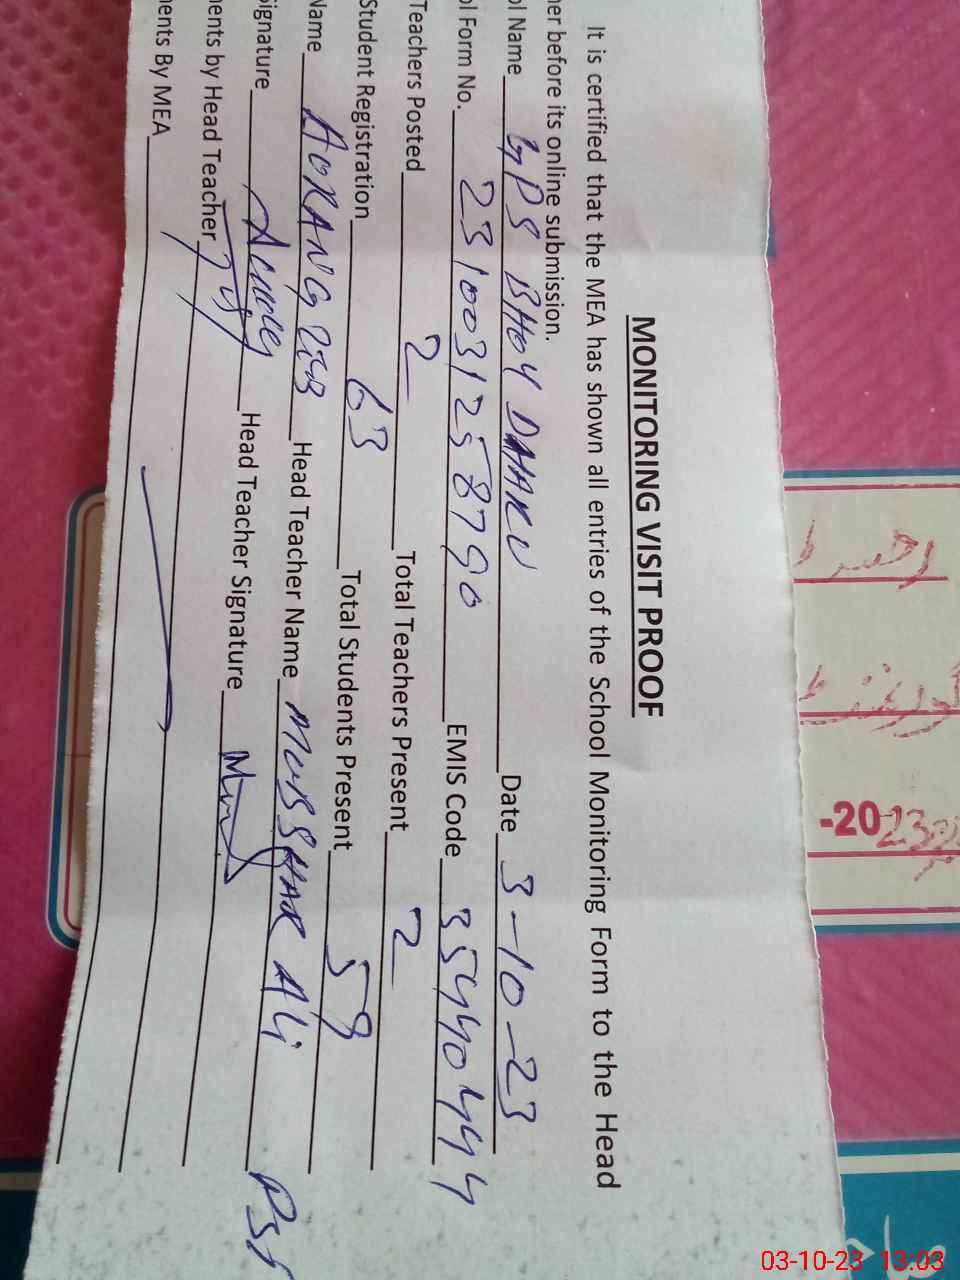 MONITORING VISIT PROOF
It is certified that the MEA has shown all entries of the School Monitoring Form to the Head
her before its online submission.
ol Name GPS BHOY DAHARU Date 3-10-23
ol Form No. 2310031258790 EMIS Code 35440444
Teachers Posted 2 Total Teachers Present 2
Student Registration 63 Total Students Present 59
Name AORANGZEB Head Teacher Name MUBSHAR ALi PST
Signature Head Teacher Signature
ments by Head Teacher
ments By MEA
-2023
03-10-23 13:03